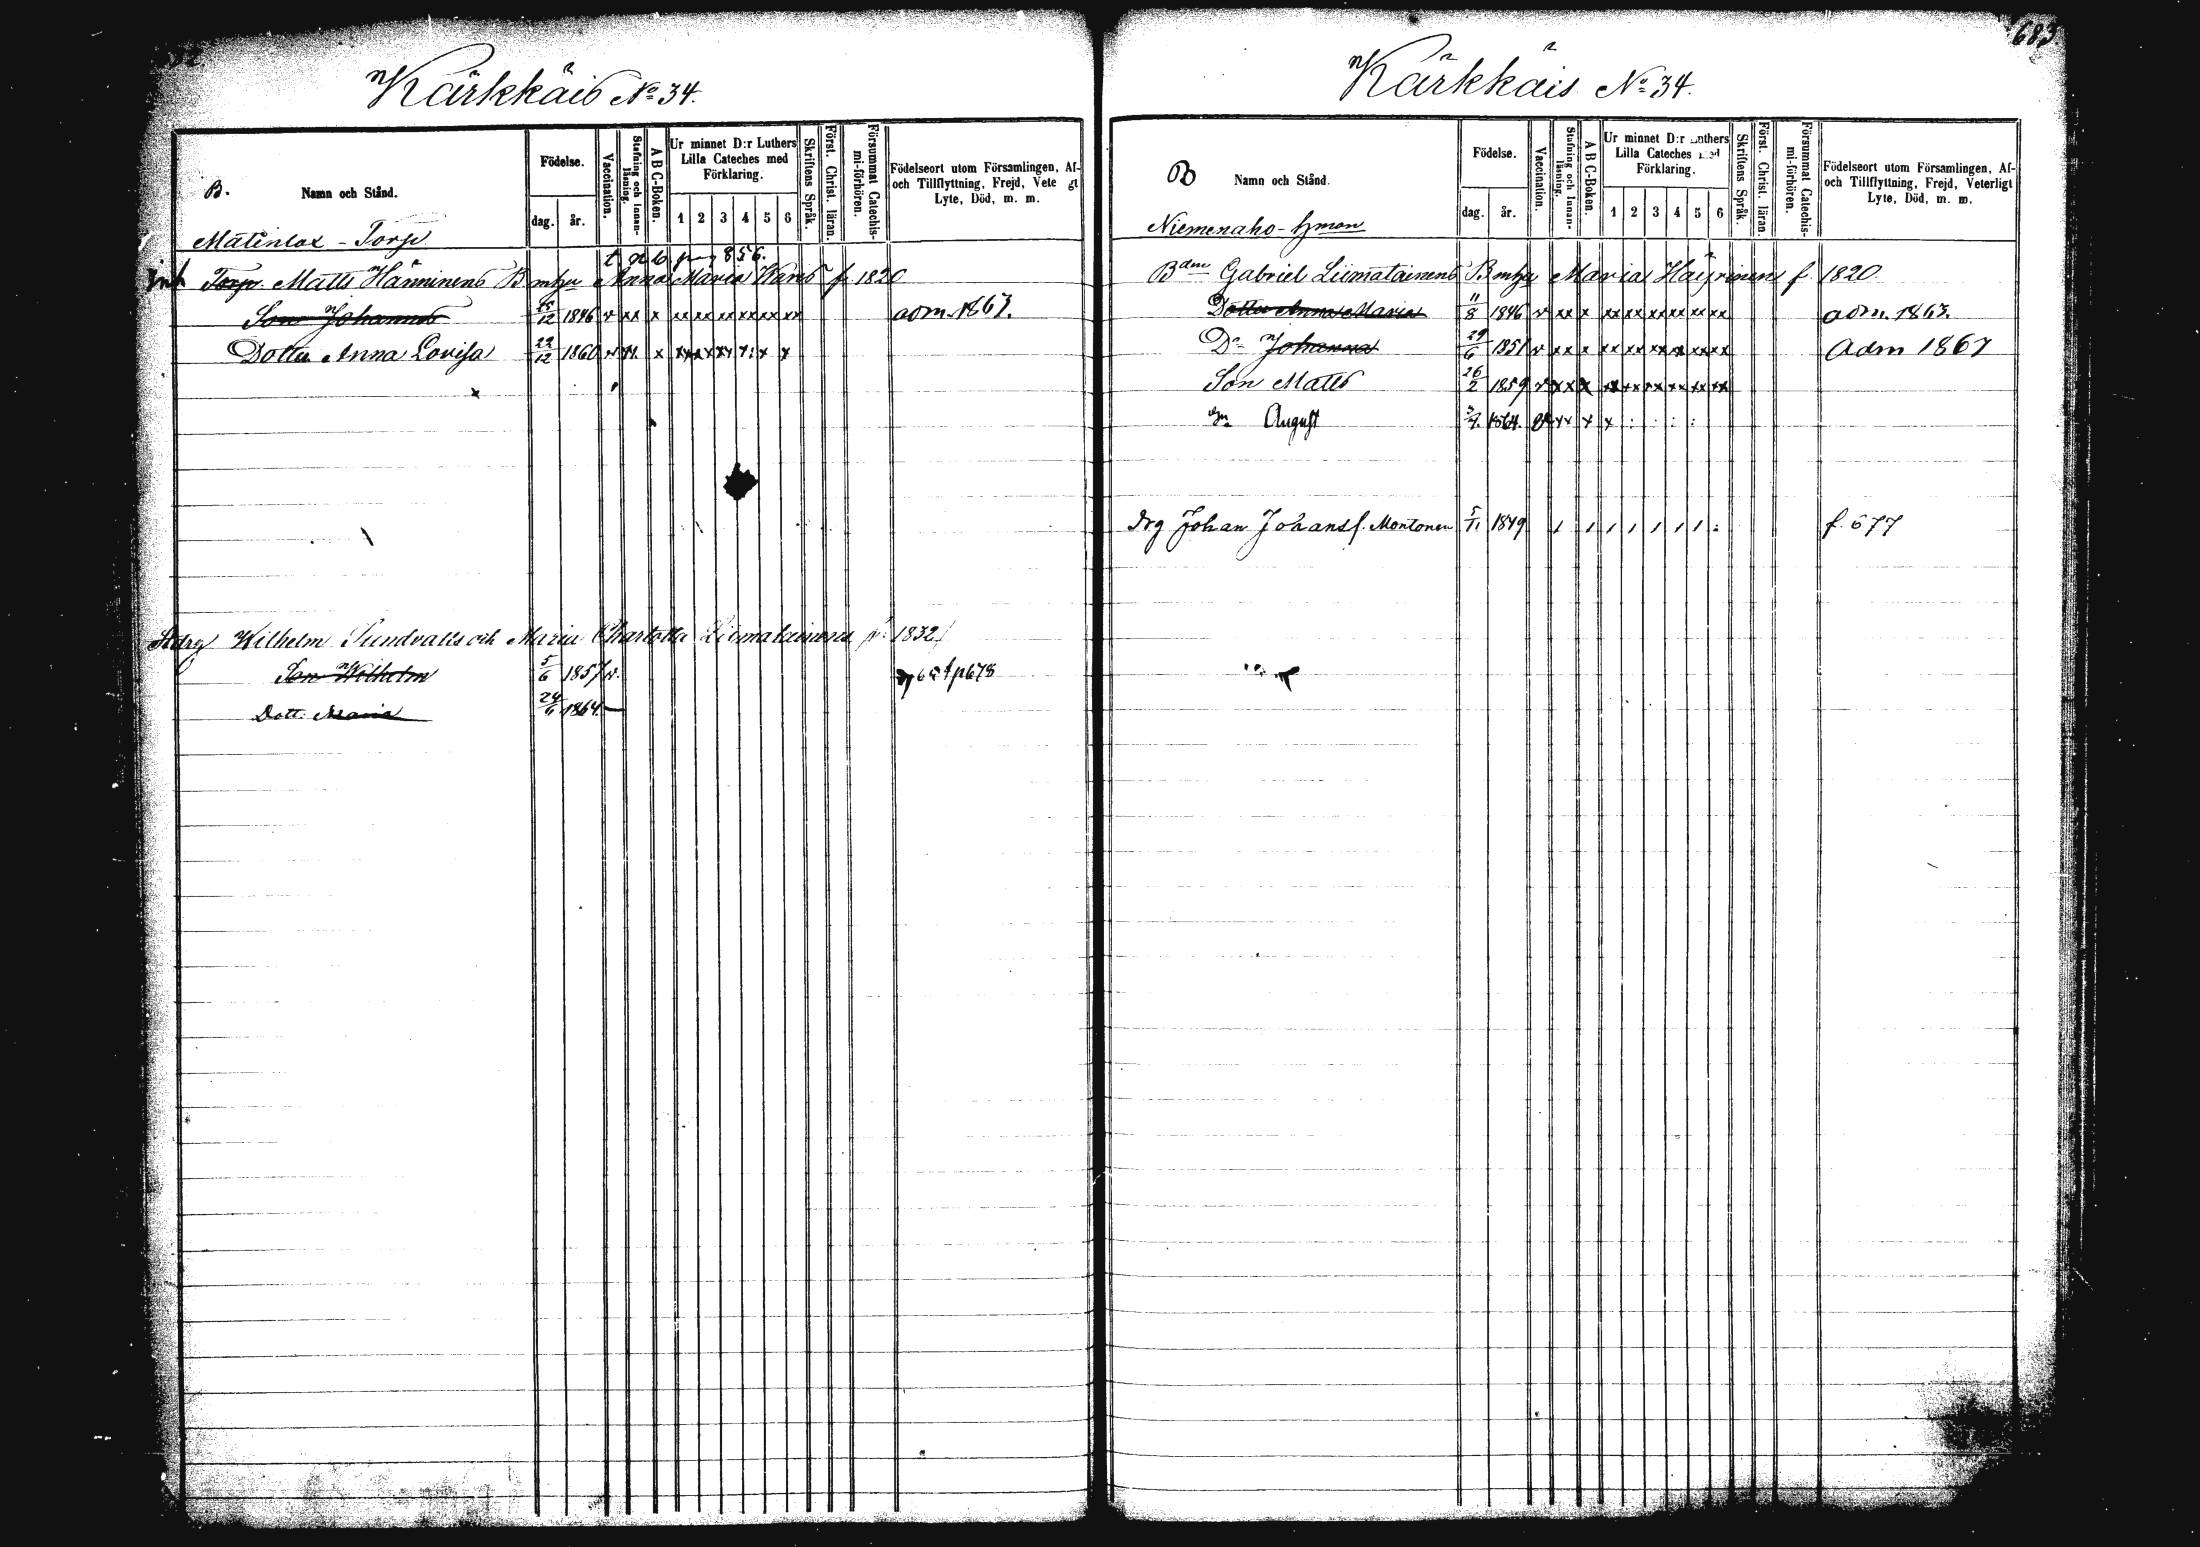 Kärkkäis No 34.
B.
Namn och Stånd.
Födelse.
dag.
år.
Vaccination.
Stafning och Innan-läsning.
A B C-Boken.
Ur minnet D:r Luthers Lilla Cateches med Förklaring.
1 2 3 4 5 6
Skriftens Språk.
Först. Christ. läran.
Försummat Catechis-mi-förhören.
Födelseort utom Församlingen, Af- och Tillflyttning, Frejd, Vete gt Lyte, Död, m. m.
Matinlax - Torp
pag 856.
Torp. Matts Hänninens Anna Maria f 1820
Son Johannes 12 1846 v xx x xx xx xx xx xx xx adm. 1863.
Dotter Anna Lovisa 22/12 1860
Wilhelm Sundvalls och Maria Charlotta Liimatainens 1832
Son Wilhelm 5/6 1857 v. p678
Dott. Maria 24/6 1864. —
683
Kärkkäis No 34.
B
Namn och Stånd.
Födelse.
dag.
år.
Vaccination.
Stafning och Innan-läsning.
A B C-Boken.
Ur minnet D:r Luthers Lilla Cateches med Förklaring.
1 2 3 4 5 6
Skriftens Språk.
Först. Christ. läran.
Försummat Catechis-mi-förhören.
Födelseort utom Församlingen, Af- och Tillflyttning, Frejd, Veterligt Lyte, Död, m. m.
Niemenaho - hyman
Bdm Gabriel Liimatainens Maria Häyrinen f 1820
Dotter Anna Maria 11/8 1846 v xx x xx xx xx xx xx xx adm. 1863.
Do Johanna 29/6 1851 v xx x xx xx xx x xx xx Adm 1867
Son Matts 26/2 1859 v xx x
August 1864.
drg Johan Johansf. Montonen 5/11 1849 f. 677